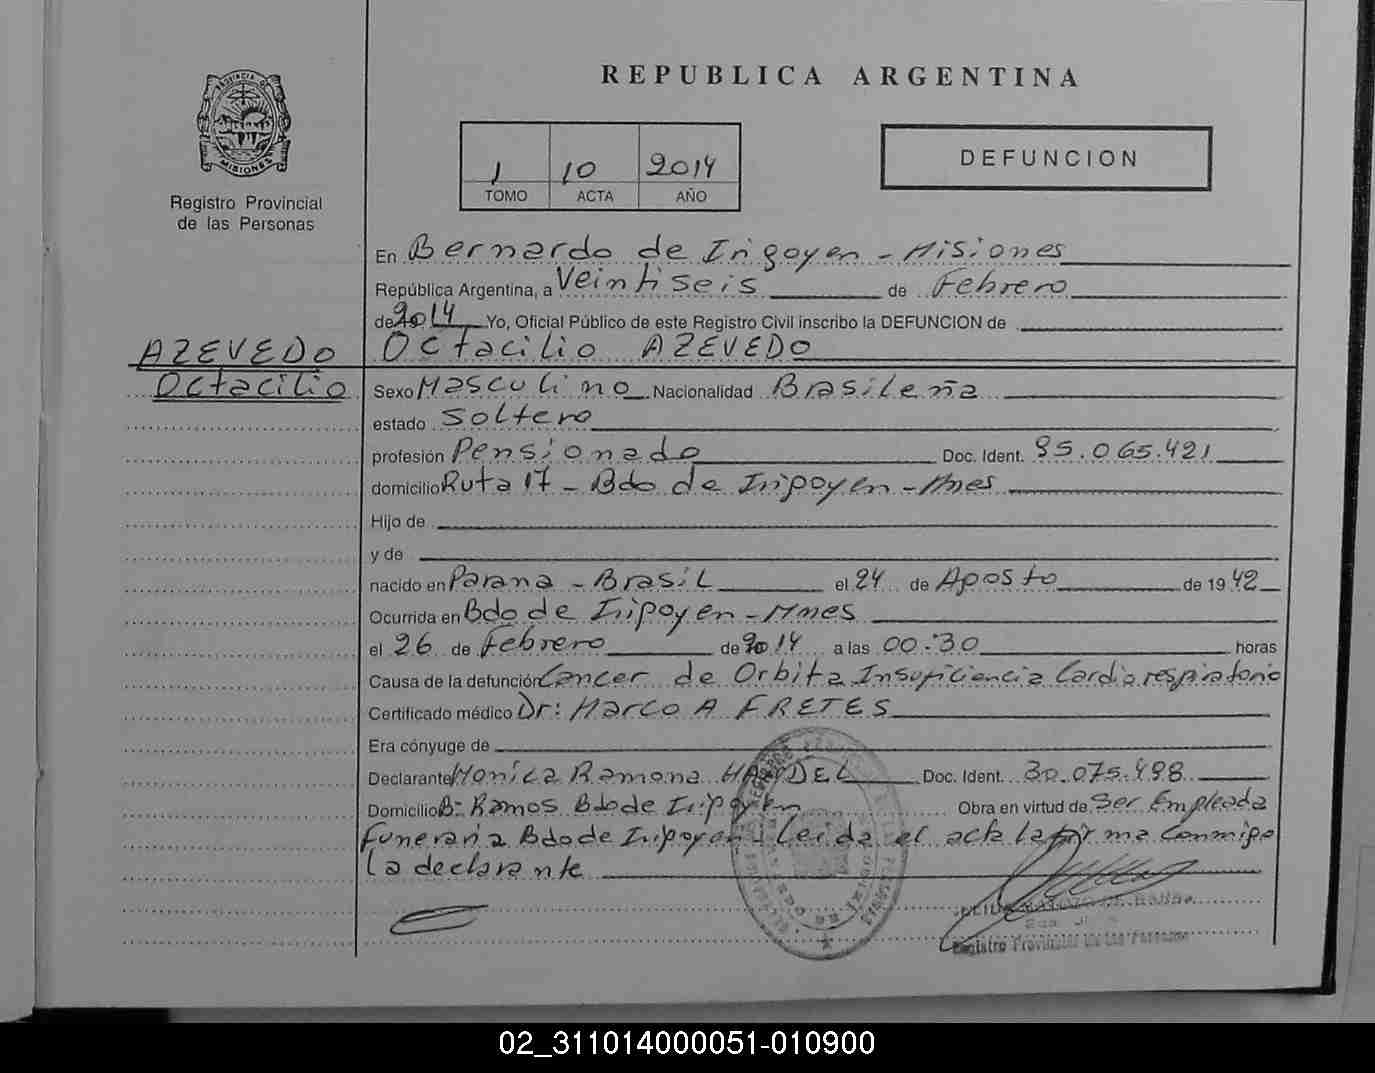 PROVINCIA DE
MISIONES
Registro Provincial
de las Personas
REPUBLICA ARGENTINA
1 10 2014
TOMO ACTA AÑO
DEFUNCION
En Bernardo de Irigoyen - Misiones
República Argentina, a Veintiseis de Febrero
de 2014 Yo, Oficial Público de este Registro Civil inscribo la DEFUNCION de
AZEVEDO Octacilio AZEVEDO
Octacilio Sexo Masculino Nacionalidad Brasileña
estado Soltero
profesión Pensionado Doc. Ident. 95.065.421
domicilio Ruta 17 - Bdo de Irigoyen - Mnes
Hijo de
y de
nacido en Parana - Brasil el 24 de Agosto de 1942
Ocurrida en Bdo de Irigoyen - Mnes
el 26 de Febrero de 2014 a las 00:30 horas
Causa de la defunción Cancer de Orbita Insuficiencia Cardiorespiratorio
Certificado médico Dr: Marco A FRETES
Era cónyuge de
Declarante Monica Ramona Doc. Ident. 30.075.498
Domicilio B: Ramos Bdo de Irigoyen Obra en virtud de Ser Empleada
funeraria Bdo de Irigoyen - Leida el acta la firma conmigo
la declarante
Registro Provincial de las Personas
02_311014000051-010900